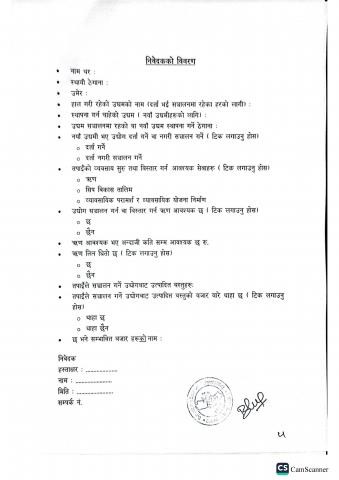 निवेदकको विवरण
• नाम थर :
• स्थायी ठेगाना :
• उमेर :
• हाल गरी रहेको उद्यमको नाम (दर्ता भई सञ्चालनमा रहेका हरुको लागी) :
• स्थापना गर्न चाहेको उद्यम ( नयाँ उद्यमीहरुको लागि) :
• उद्यम सञ्चालनमा रहेको वा नयाँ उद्यम स्थापना गर्ने ठेगाना :
• नयाँ उद्यमी भए उद्योग दर्ता गर्ने वा नगरी सञ्चालन गर्ने ( टिक लगाउनु होस)
o दर्ता गर्ने
o दर्ता नगरी सञ्चालन गर्ने
• तपाईको व्यवसाय सुरु तथा विस्तार गर्न आवश्यक सेवाहरु ( टिक लगाउनु होस)
o ऋण
o सिप विकास तालिम
o व्यावसायिक परामर्श र व्यावसायिक योजना निर्माण
• उद्योग सञ्चालन गर्न वा विस्तार गर्न ऋण आवश्यक छ ( टिक लगाउनु होस)
o छ
o छैन
• ऋण आवश्यक भए अन्दाजी कति सम्म आवश्यक छ रु.
• ऋण लिन धितो छ ( टिक लगाउनु होस)
o छ
o छैन
• तपाईले सञ्चालन गर्ने उद्योगबाट उत्पादित वस्तुहरु:
• तपाईले सञ्चालन गर्ने उद्योगबाट उत्पादित वस्तुको बजार बारे थाहा छ ( टिक लगाउनु
होस)
o थाहा छ
o थाहा छैन
• छ भने सम्भावित बजार हरुको नाम :
निवेदक
हस्ताक्षर : ....................
नाम : ......................
मिति : ......................
सम्पर्क नं.
५
CS CamScanner